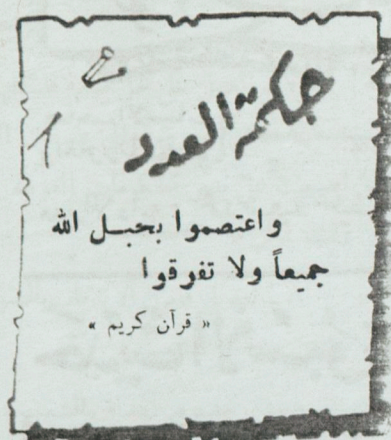 حكمة العدد
واعتصموا بحبل الله
جميعاً ولا تفرقوا
« قرآن كريم »